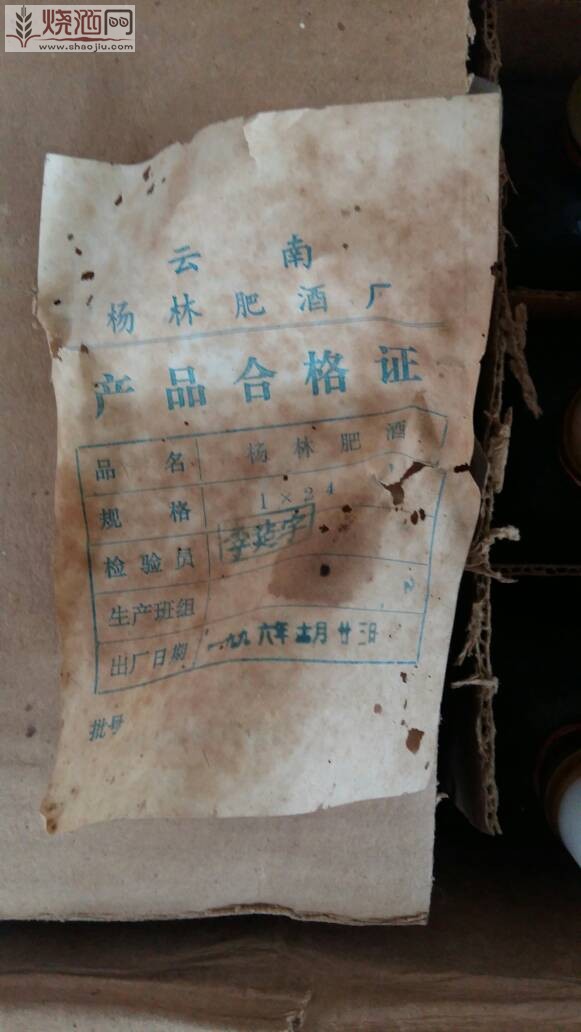 烧酒网
www.shaojiu.com
云南
杨林肥酒厂
产品合格证
品名 杨林肥酒
规格 1×24
检验员
生产班组 2
出厂日期 一九九六年十二月廿三日
批号